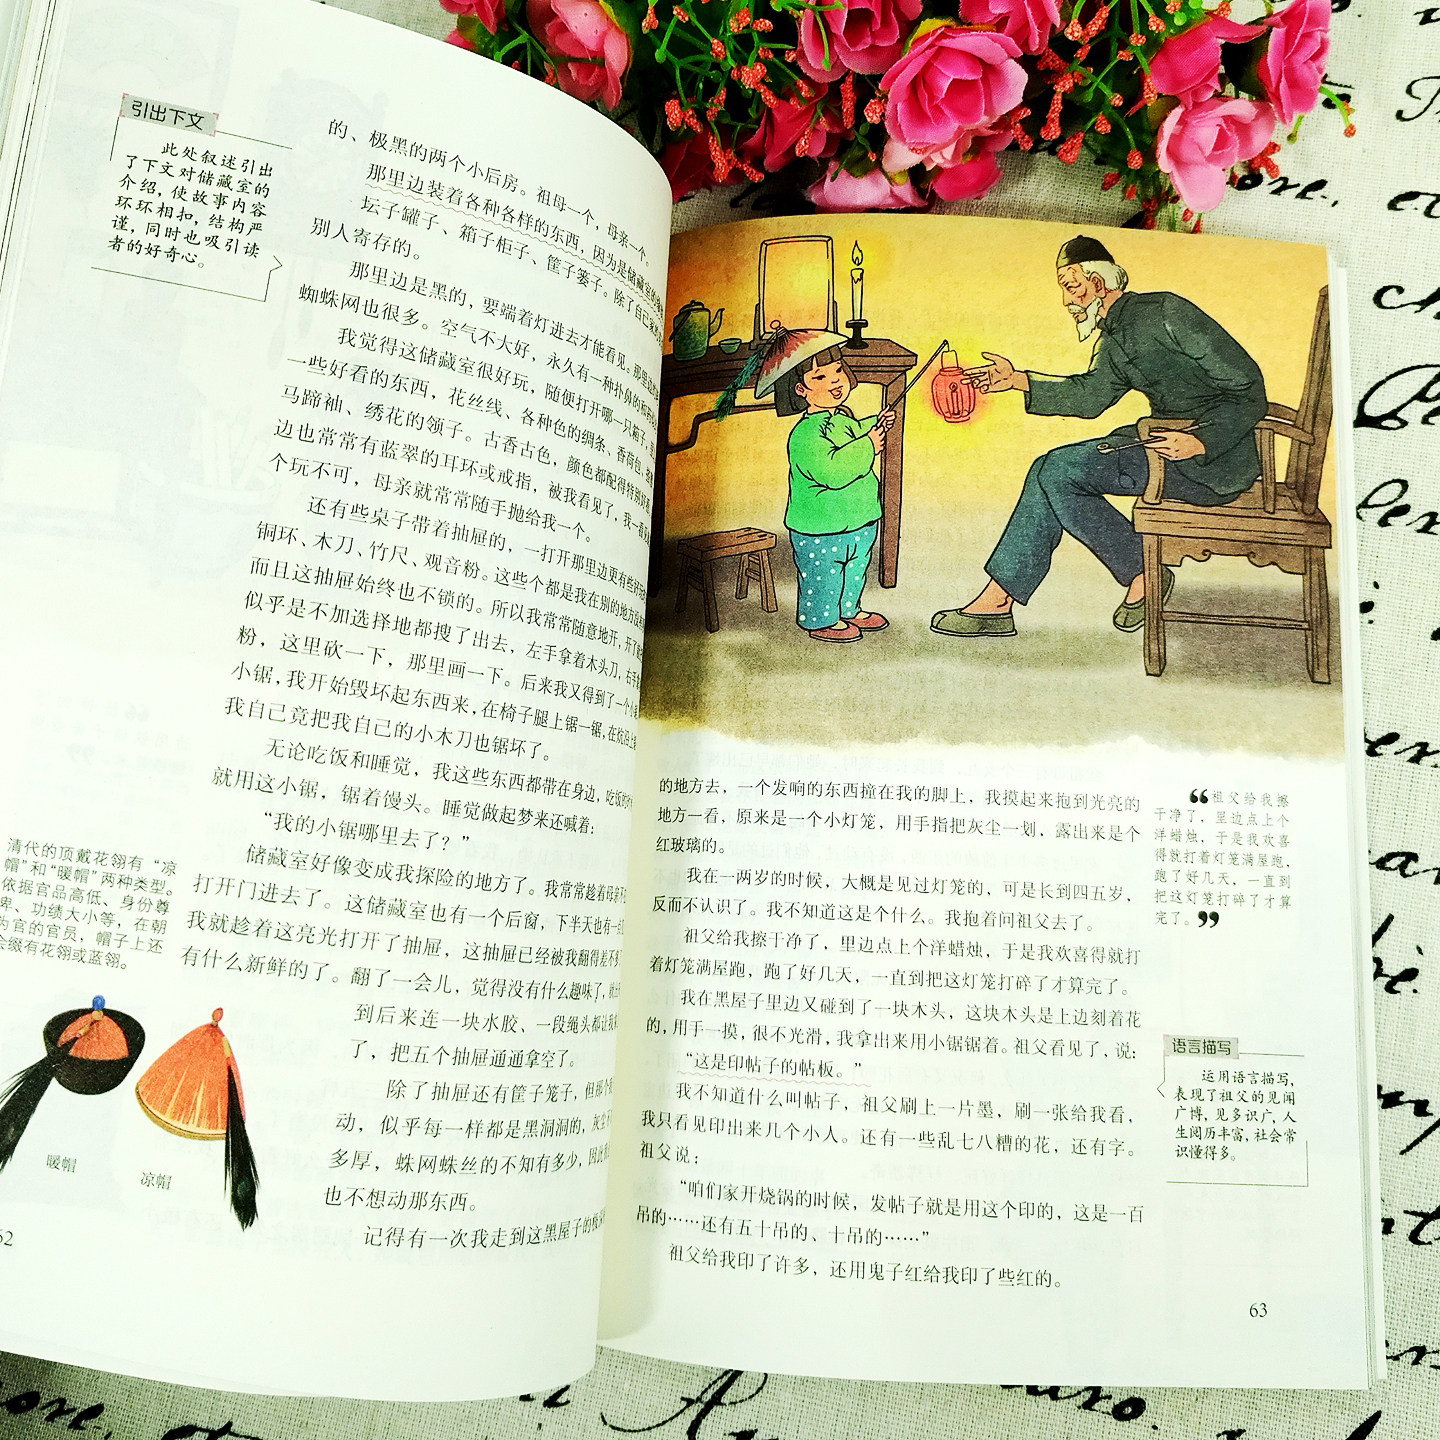 引出下文
此处叙述引出
了下文对储藏室的
介绍，使故事内容
环环相扣，结构严
谨，同时也吸引读
者的好奇心。
的、极黑的两个小后房。祖母一个，母亲一个。
那里边装着各种各样的东西，因为是储藏室的
坛子罐子、箱子柜子、筐子篓子。除了自己家的
别人寄存的。
那里边是黑的，要端着灯进去才能看见。那里边的
蜘蛛网也很多。空气不大好，永久有一种扑鼻的
我觉得这储藏室很好玩，随便打开哪一只箱子，里
一些好看的东西，花丝线、各种色的绸条、香荷包、
马蹄袖、绣花的领子。古香古色，颜色都配得特别好看
边也常常有蓝翠的耳环或戒指，被我看见了，我一看见
个玩不可，母亲就常常随手抛给我一个。
还有些桌子带着抽屉的，一打开那里边更有些好玩的
铜环、木刀、竹尺、观音粉。这些个都是我在别的地方没
而且这抽屉始终也不锁的。所以我常常随意地开，开了
似乎是不加选择地都搜了出去，左手拿着木头刀，右手
粉，这里砍一下，那里画一下。后来我又得到了一个小
小锯，我开始毁坏起东西来，在椅子腿上锯一锯，在炕沿上
我自己竟把我自己的小木刀也锯坏了。
无论吃饭和睡觉，我这些东西都带在身边，吃饭的
就用这小锯，锯着馒头。睡觉做起梦来还喊着：
“我的小锯哪里去了？”
储藏室好像变成我探险的地方了。我常常趁着母亲不
打开门进去了。这储藏室也有一个后窗，下半天也有一点
我就趁着这亮光打开了抽屉，这抽屉已经被我翻得差不多
有什么新鲜的了。翻了一会儿，觉得没有什么趣味了，
到后来连一块水胶、一段绳头都让我
了，把五个抽屉通通拿空了。
除了抽屉还有筐子笼子，但那个
动，似乎每一样都是黑洞洞的，灰尘
多厚，蛛网蛛丝的不知有多少，因此
也不想动那东西。
记得有一次我走到这黑屋子的极
清代的顶戴花翎有“凉
帽”和“暖帽”两种类型。
依据官品高低、身份尊
卑、功绩大小等，在朝
为官的官员，帽子上还
会缀有花翎或蓝翎。
暖帽
凉帽
62
的地方去，一个发响的东西撞在我的脚上，我摸起来抱到光亮的
地方一看，原来是一个小灯笼，用手指把灰尘一划，露出来是个
红玻璃的。
我在一两岁的时候，大概是见过灯笼的，可是长到四五岁，
反而不认识了。我不知道这是个什么。我抱着问祖父去了。
祖父给我擦干净了，里边点上个洋蜡烛，于是我欢喜得就打
着灯笼满屋跑，跑了好几天，一直到把这灯笼打碎了才算完了。
我在黑屋子里边又碰到了一块木头，这块木头是上边刻着花
的，用手一摸，很不光滑，我拿出来用小锯锯着。祖父看见了，说：
“这是印帖子的帖板。”
我不知道什么叫帖子，祖父刷上一片墨，刷一张给我看，
我只看见印出来几个小人。还有一些乱七八糟的花，还有字。
祖父说：
“咱们家开烧锅的时候，发帖子就是用这个印的，这是一百
吊的……还有五十吊的、十吊的……”
祖父给我印了许多，还用鬼子红给我印了些红的。
“祖父给我擦
干净了，里边点上个
洋蜡烛，于是我欢喜
得就打着灯笼满屋跑，
跑了好几天，一直到
把这灯笼打碎了才算
完了。”
语言描写
运用语言描写，
表现了祖父的见闻
广博，见多识广，人
生阅历丰富，社会常
识懂得多。
63